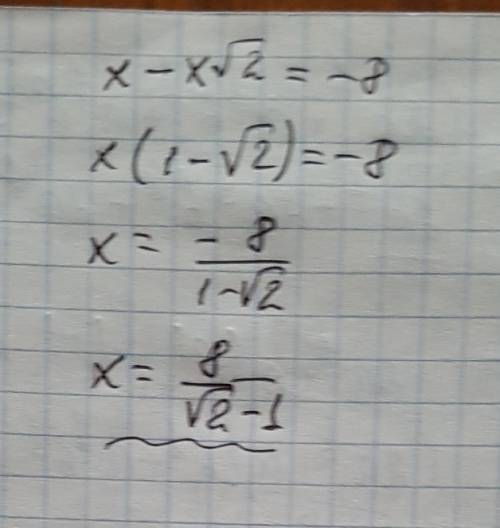 x - x√2 = -8
x(1 - √2) = -8
x = - 8 / 1-√2
x = 8 / √2 - 1